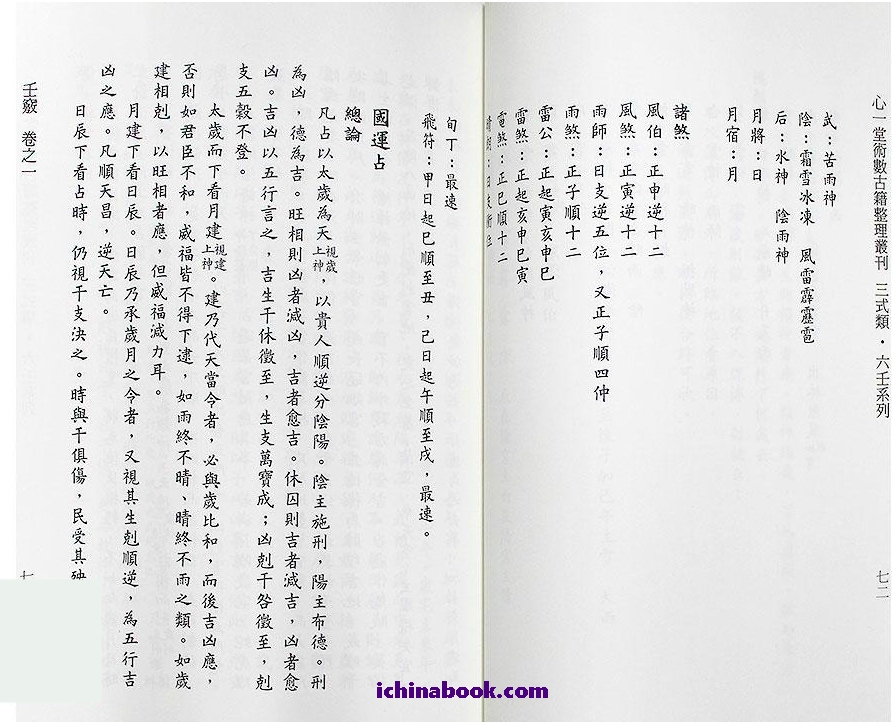 心一堂術數古籍整理叢刊 三式類・六壬系列
七二
武：苦雨神
陰：霜雪冰凍 風雷霹靂雹
后：水神 陰雨神
月將：日
月宿：月
諸煞
風伯：正申逆十二
風煞：正寅逆十二
雨師：日支逆五位，又正子順四仲
雨煞：正子順十二
雷公：正起寅亥申巳
雷煞：正起亥申巳寅
電煞：正巳順十二
：日支
旬丁：最速
飛符：甲日起巳順至丑，己日起午順至戌，最速。
國運占
總論
凡占以太歲為天視歲上神，以貴人順逆分陰陽。陰主施刑，陽主布德。刑
為凶，德為吉。旺相則凶者減凶，吉者愈吉。休囚則吉者減吉，凶者愈
凶。吉凶以五行言之，吉生干休徵至，生支萬寶成；凶剋干咎徵至，剋
支五穀不登。
太歲而下看月建視建上神。建乃代天當令者，必與歲比和，而後吉凶應，
否則如君臣不和，威福皆不得下逮，如雨終不晴、晴終不雨之類。如歲
建相剋，以旺相者應，但威福減力耳。
月建下看日辰。日辰乃承歲月之令者，又視其生剋順逆，為五行吉
凶之應。凡順天昌，逆天亡。
日辰下看占時，仍視干支決之。時與干俱傷，民受其殃
壬竅 卷之一
ichinabook.com